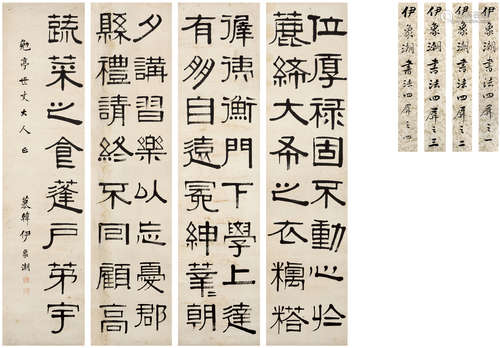 位厚禄固不動心於
麤絺大布之衣糲
徲德衡門下學上達
有朋自遠冕紳莘朝
夕講習樂以忘憂郡
縣禮請終不回顧高
蔬菜之食蓬戶茅宇
勉亭世丈大人正
慕韓伊象湖
伊象湖書法四屏之一
伊象湖書法四屏之二
伊象湖書法四屏之三
伊象湖書法四屏之四